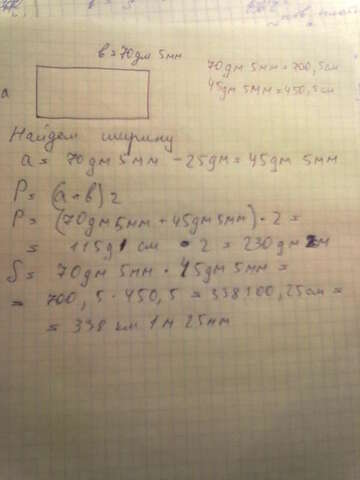 в = 70дм 5мм
70дм 5мм = 700,5см
45дм 5мм = 450,5см
а
Найдем ширину
а = 70дм 5мм - 25дм = 45дм 5мм
Р = (а+в) 2
Р = (70дм 5мм + 45дм 5мм) · 2 =
= 115д1 см · 2 = 230дм
S = 70дм 5мм · 45дм 5мм =
= 700,5 · 450,5 = 338100,25см =
= 338 км 1м 25мм